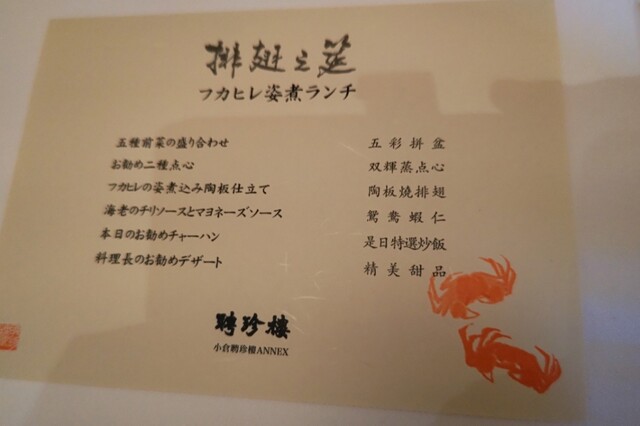 排翅之筵
フカヒレ姿煮ランチ
五種前菜の盛り合わせ 五彩拼盆
お勧め二種点心 双輝蒸点心
フカヒレの姿煮込み陶板仕立て 陶板燒排翅
海老のチリソースとマヨネーズソース 鴛鴦蝦仁
本日のお勧めチャーハン 是日特選炒飯
料理長のお勧めデザート 精美甜品
聘珍樓
小倉聘珍樓ANNEX